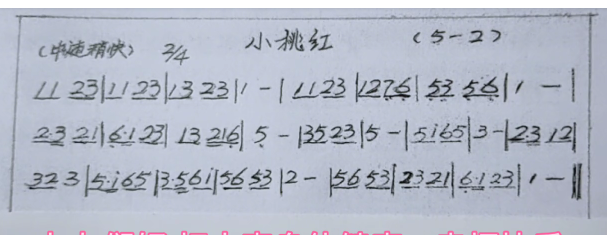 (中速稍快) 2/4 小桃红 (5-2)
11 23|11 23|13 23|1 -|11 23|1276|53 56|1 -|
2·3 21|6·123|13 216|5 -|3523|5 -|5i65|3 -|2·3 12|
32 3|5·i65|3·56i|56 53|2 -|56 53|2321|6·123|1 -‖